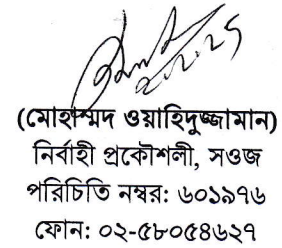 (মোহাম্মদ ওয়াহিদুজ্জামান)
নির্বাহী প্রকৌশলী, সওজ
পরিচিতি নম্বর: ৬০১৯৭৬
ফোন: ০২-৫৮০৫৪৬২৭